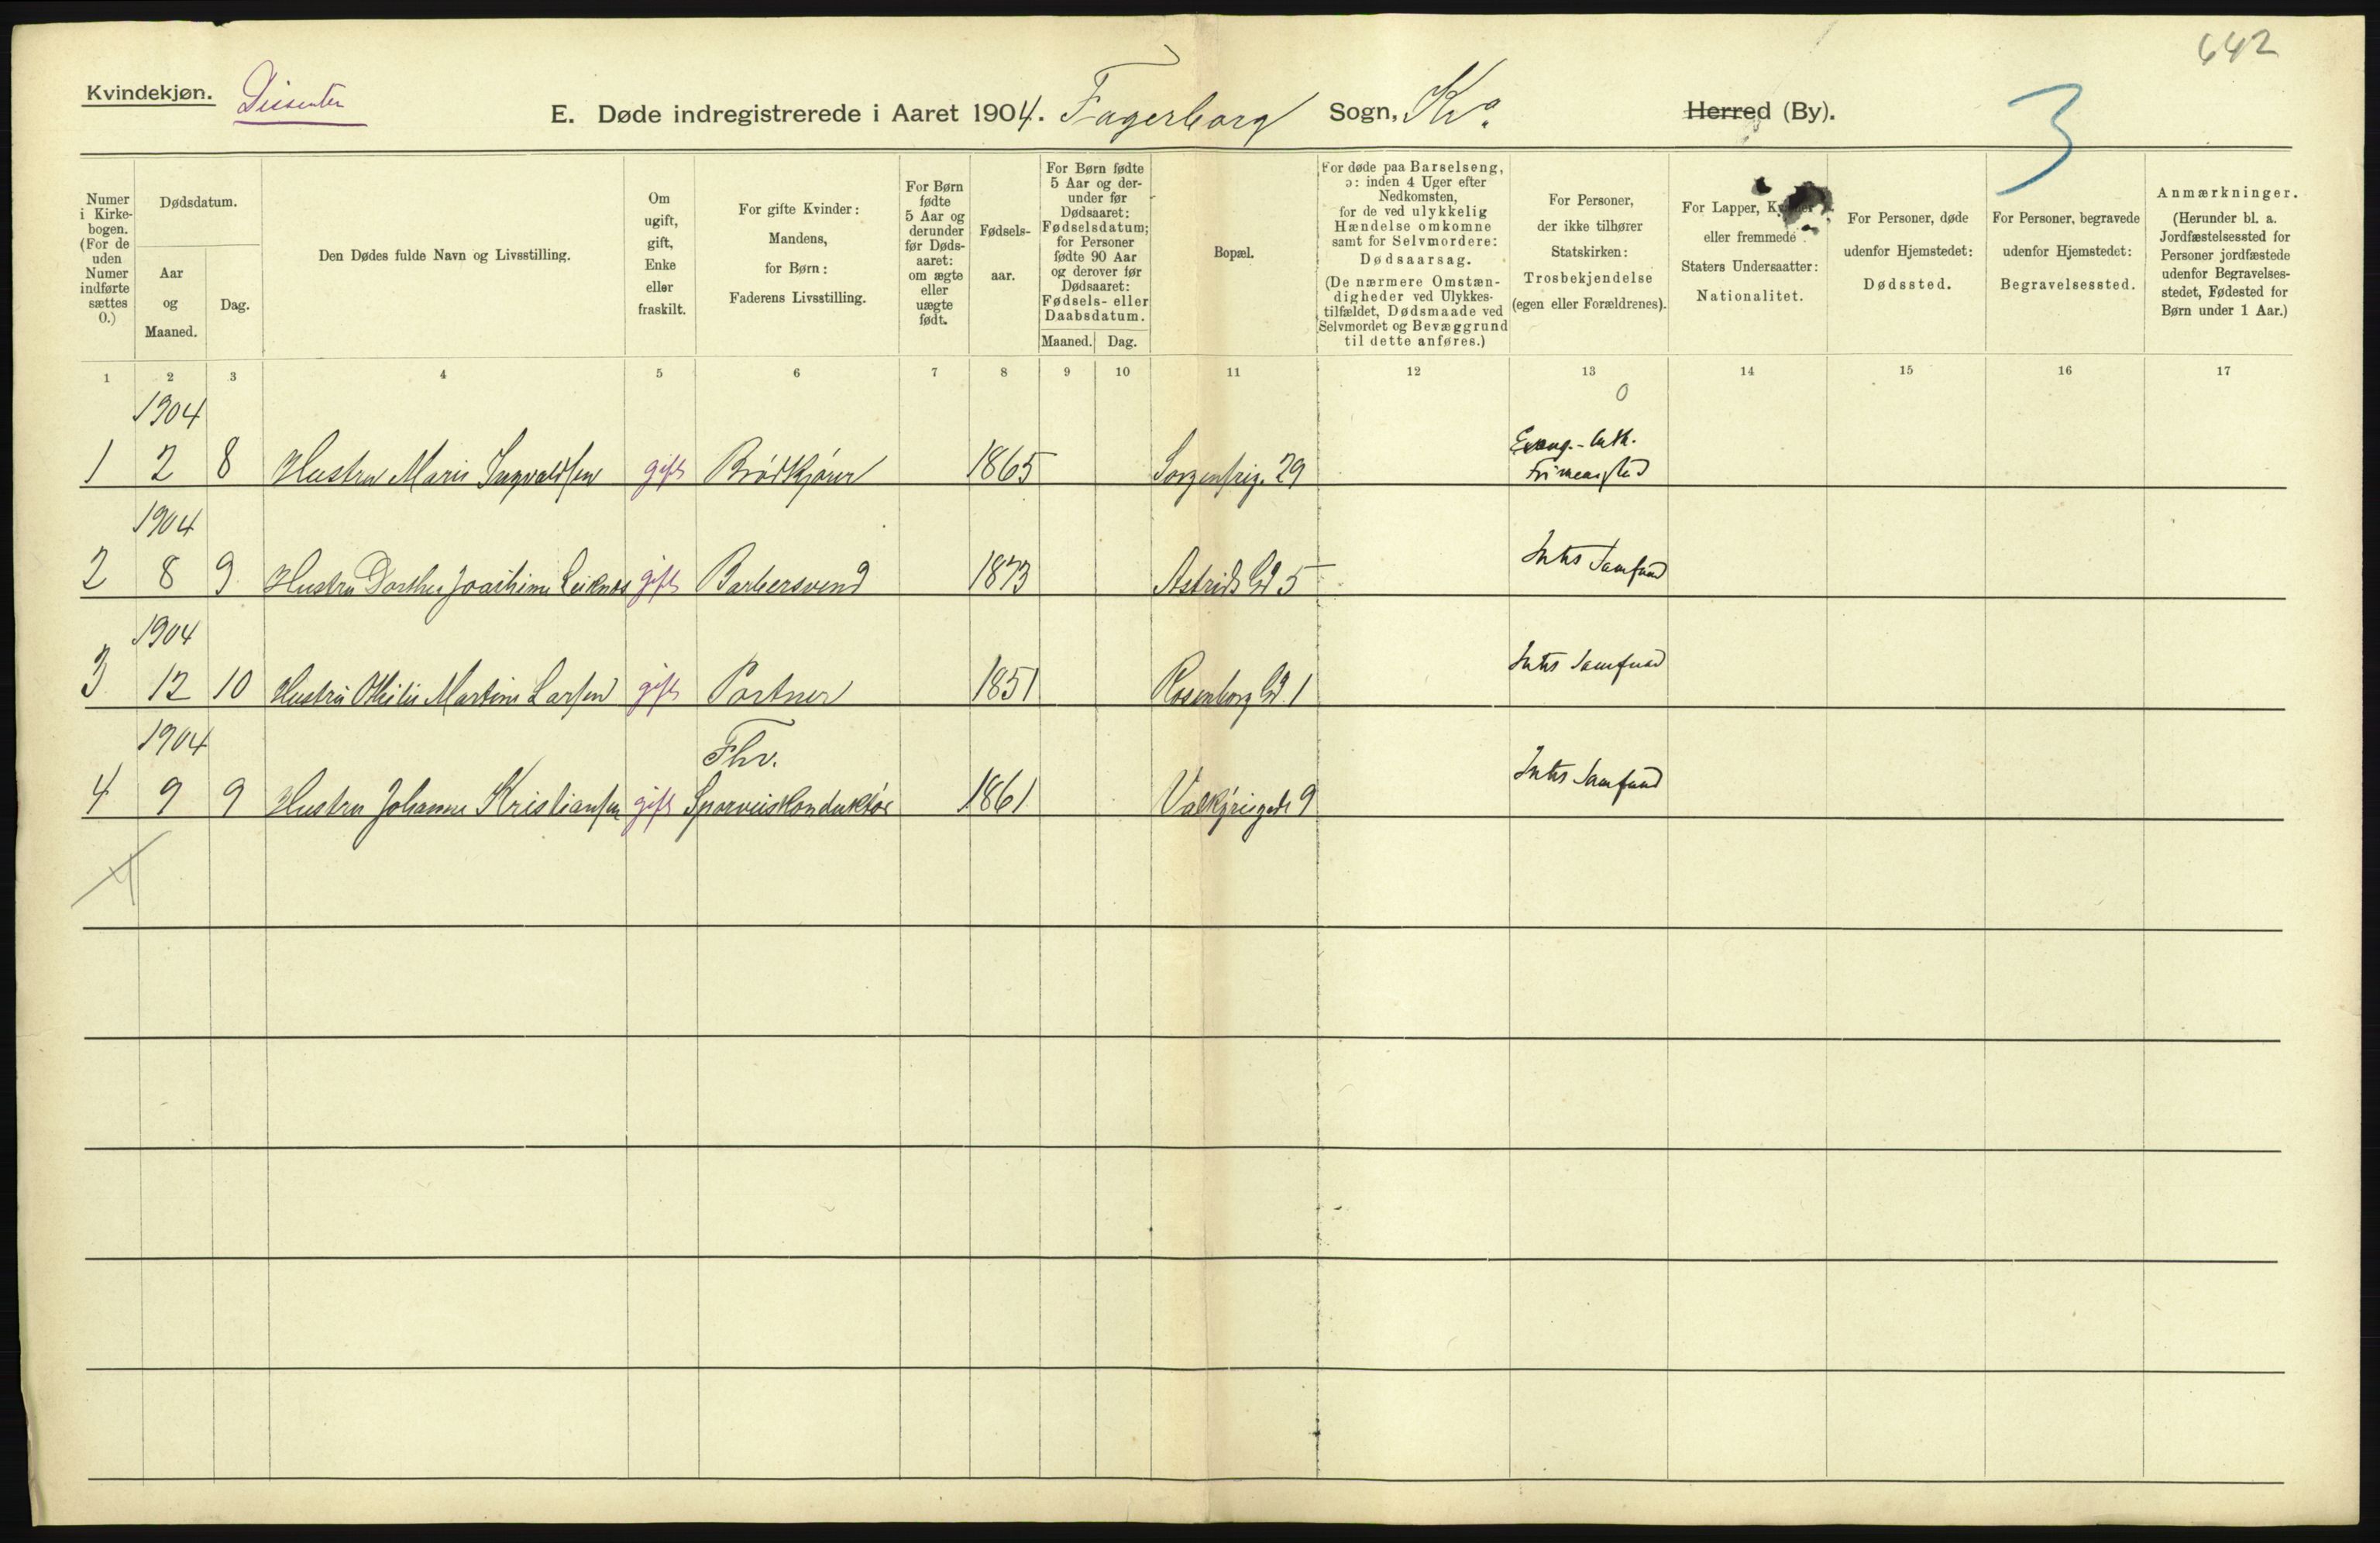 642
Kvindekjøn. Dissenter
E. Døde indregistrerede i Aaret 1904. Fagerborg Sogn, Kr.a Herred (By).
3
Numer i Kirke-bogen. (For de uden Numer indførte sættes 0.)
Dødsdatum.
Aar og Maaned.
Dag.
Den Dødes fulde Navn og Livsstilling.
Om ugift, gift, Enke eller fraskilt.
For gifte Kvinder: Mandens, for Børn: Faderens Livsstilling.
For Børn fødte 5 Aar og derunder før Døds-aaret: om ægte eller uægte født.
Fødsels-aar.
For Børn fødte 5 Aar og der-under før Dødsaaret: Fødselsdatum; for Personer fødte 90 Aar og derover før Dødsaaret: Fødsels- eller Daabsdatum.
Maaned. Dag.
Bopæl.
For døde paa Barselseng, ɔ: inden 4 Uger efter Nedkomsten, for de ved ulykkelig Hændelse omkomne samt for Selvmordere: Dødsaarsag. (De nærmere Omstæn-digheder ved Ulykkes-tilfældet, Dødsmaade ved Selvmordet og Bevæggrund til dette anføres.)
For Personer, der ikke tilhører Statskirken: Trosbekjendelse (egen eller Forældrenes).
For Lapper, eller fremmede Staters Undersaatter: Nationalitet.
For Personer, døde udenfor Hjemstedet: Dødssted.
For Personer, begravede udenfor Hjemstedet: Begravelsessted.
Anmærkninger. (Herunder bl. a. Jordfæstelsessted for Personer jordfæstede udenfor Begravelses-stedet, Fødested for Børn under 1 Aar.)
1 2 3 4 5 6 7 8 9 10 11 12 13 14 15 16 17
0
1904
1 2 8 Hustru Marie Ingvaldsen gift Brødkjører 1865 Sorgenfrig. 29 Evang.-luth. Frimenighed
1904
2 8 9 Hustru Dorthea Joachime gift Barbersvend 1873 Astrids Gd 5 Intet Samfund
1904
3 12 10 Hustru Othilie Martine Larsen gift Portner 1851 Rosenborg Gd. 1 Intet Samfund
1904
4 9 9 Hustru Johanne Kristiansen gift Fhv. Sporveiskonduktør 1861 Valkyriegade 9 Intet Samfund
4